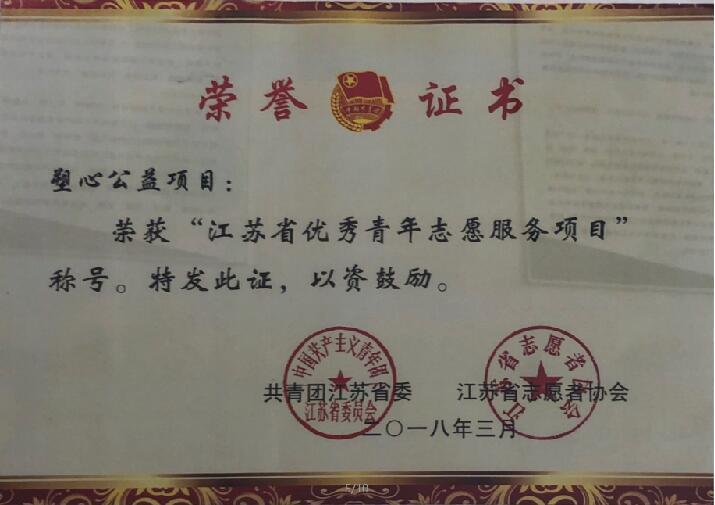 荣誉证书
塑心公益项目：
荣获“江苏省优秀青年志愿服务项目”
称号。特发此证，以资鼓励。
中国共产主义青年团
江苏省委员会
江苏省志愿者协会
共青团江苏省委 江苏省志愿者协会
二〇一八年三月
5/10